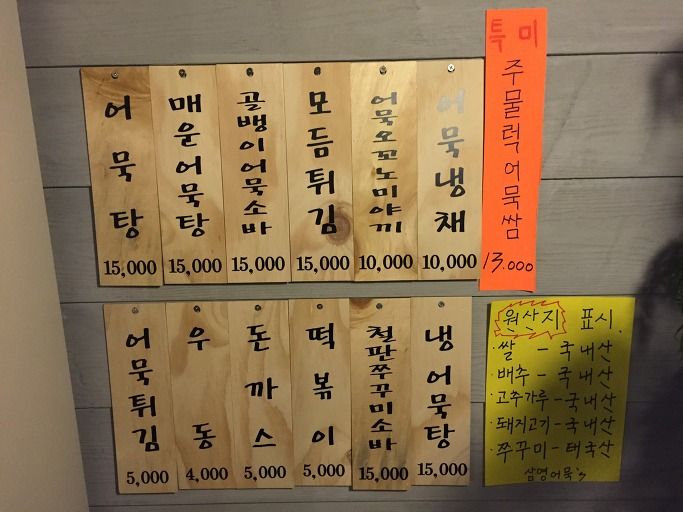 어묵탕
15,000
매운어묵탕
15,000
골뱅이어묵소바
15,000
모듬튀김
15,000
어묵오꼬노미야끼
10,000
어묵냉채
10,000
특미
주물럭어묵쌈
13.000
어묵튀김
5,000
우동
4,000
돈까스
5,000
떡볶이
5,000
철판쭈꾸미소바
15,000
냉어묵탕
15,000
원산지 표시.
·쌀 - 국내산
·배추 - 국내산
·고추가루 - 국내산
·돼지고기 - 국내산
·쭈꾸미 - 태국산
삼명어묵's